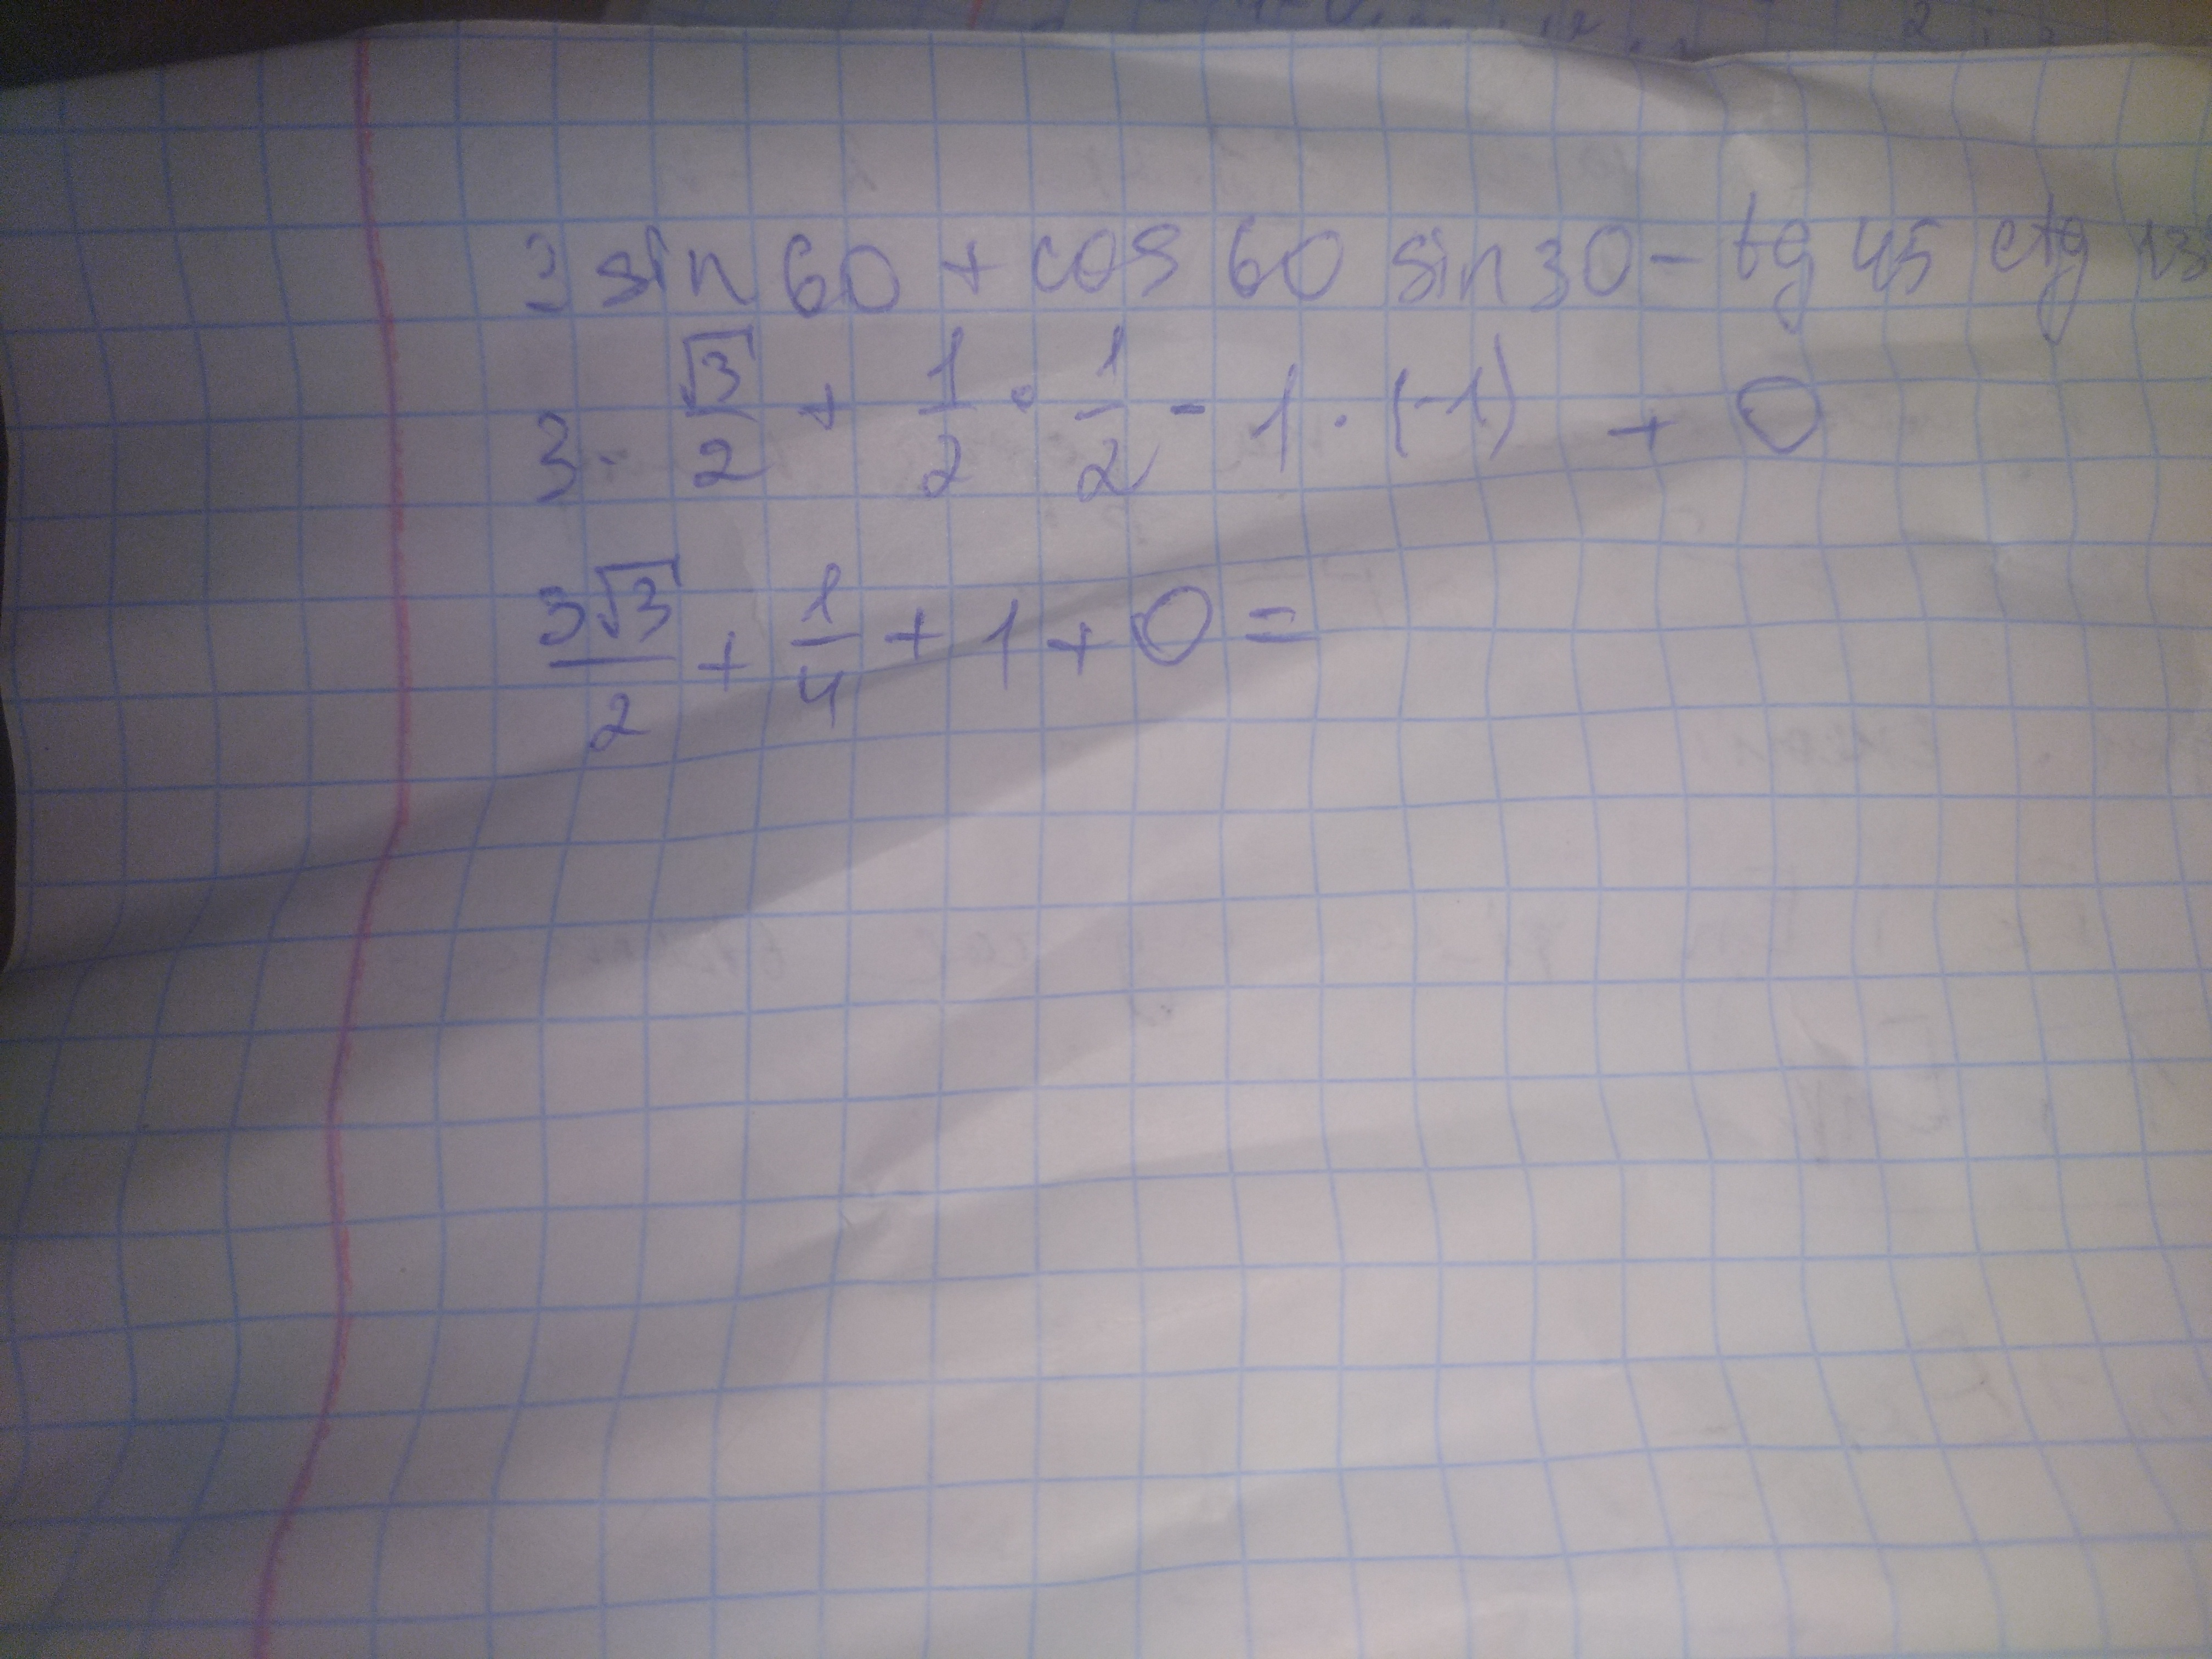 3 sin 60 + cos 60 sin 30 - tg 45 ctg 13
3 · √3/2 + 1/2 · 1/2 - 1 · (-1) + 0
3√3/2 + 1/4 + 1 + 0 =